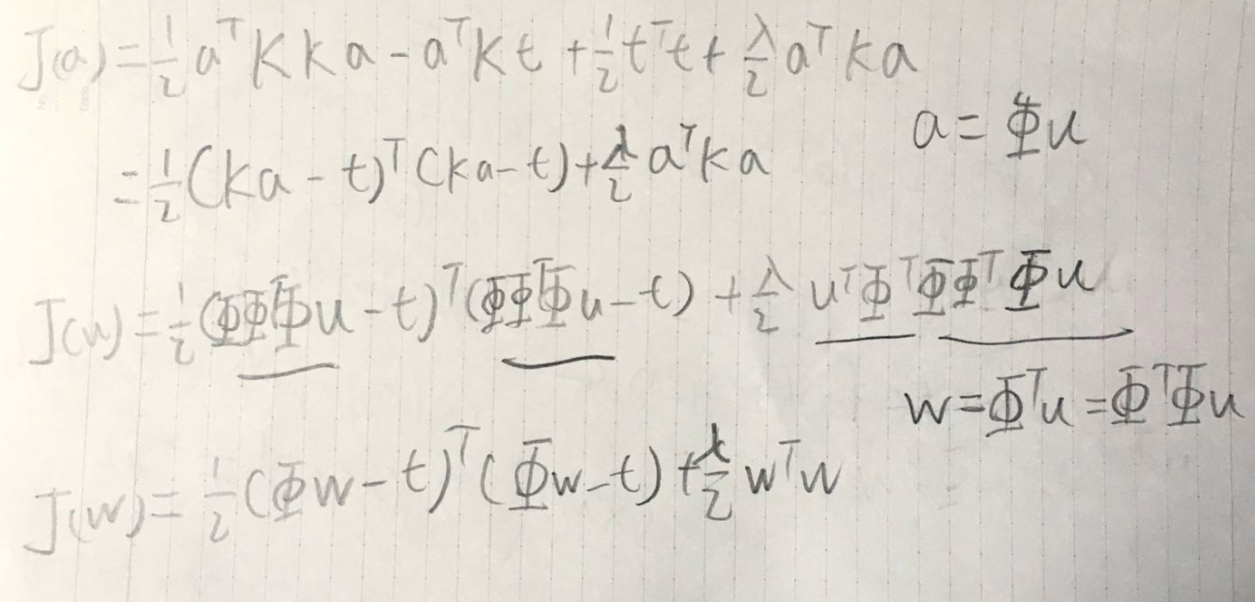 J(a) = ½ aᵀKKa - aᵀKt + ½ tᵀt + λ/2 aᵀKa
a = Φu
= ½ (Ka - t)ᵀ(Ka - t) + λ/2 aᵀKa
J(u) = ½ (ΦΦᵀΦu - t)ᵀ(ΦΦᵀΦu - t) + λ/2 uᵀΦᵀΦΦᵀΦu
w = Φᵀu = ΦᵀΦu
J(w) = ½ (Φw - t)ᵀ(Φw - t) + λ/2 wᵀw